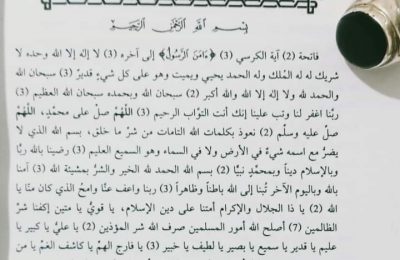 بِسْمِ اللَّهِ الرَّحْمَنِ الرَّحِيمِ
فاتحة (2) آية الكرسي (3) ﴿ءَامَنَ الرَّسُولُ﴾ إلى آخره (3) لا إله إلا الله وحده لا
شريك له له المُلك وله الحمد يحيي ويميت وهو على كل شيءٍ قديرٌ (3) سبحان الله
والحمد لله ولا إله إلا الله والله أكبر (2) سبحان الله وبحمده سبحان الله العظيم (3)
ربَّنا اغفر لنا وتب علينا إنك أنت التوَّاب الرحيم (3) اللَّهُمَّ صلِّ على محمَّدٍ، اللَّهُمَّ
صلِّ عليه وسلِّم (2) نعوذ بكلمات الله التامات من شرِّ ما خلق، بسم الله الذي لا
يضرُّ مع اسمه شيءٌ في الأرض ولا في السماء وهو السميع العليم (3) رضينا بالله ربًّا
وبالإسلام ديناً وبمحمَّدٍ نبيًّا (2) بسم الله والحمد لله والخير والشرُّ بمشيئة الله (3) آمنا
بالله وباليوم الآخر تُبنا إلى الله باطناً وظاهراً (3) ربنا واعف عنَّا وامحُ الذي كان منَّا يا
الله (2) يا ذا الجلال والإكرام أمتنا على دين الإسلام، يا قويُّ يا متين إكفنا شرَّ
الظالمين (7) أصلح الله أمور المسلمين صرف الله شر المؤذين (2) يا عليُّ يا كبير يا
عليم يا قدير يا سميع يا بصير يا لطيف يا خبير (3) يا فارج الهمِّ يا كاشف الغمِّ يا من